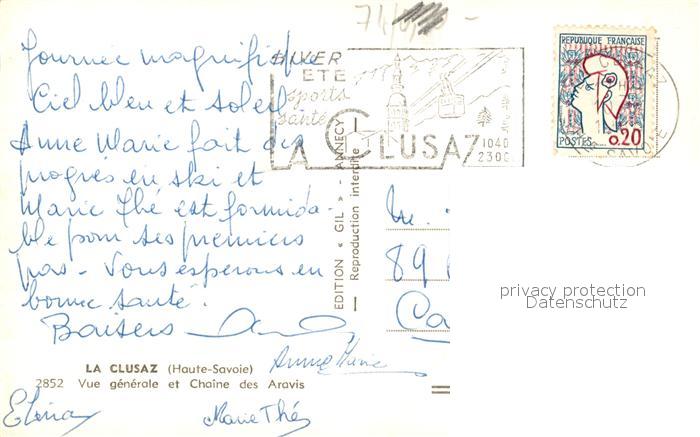 Journée magnifique
Ciel bleu et soleil
Anne Marie fait des
progrès en ski et
Marie Thé est formida-
ble pour ses premiers
pas - Vous espérons en
bonne santé.
Baisers
Anne Marie
Marie Thé
LA CLUSAZ (Haute-Savoie)
2852 Vue générale et Chaîne des Aravis
EDITION « GIL » - ANNECY
Reproduction interdite
HIVER
ETE
sports
santé
LA CLUSAZ
1040
2300
REPUBLIQUE FRANÇAISE
POSTES
0,20
SAVOIE
89
Ca
privacy protection
Datenschutz